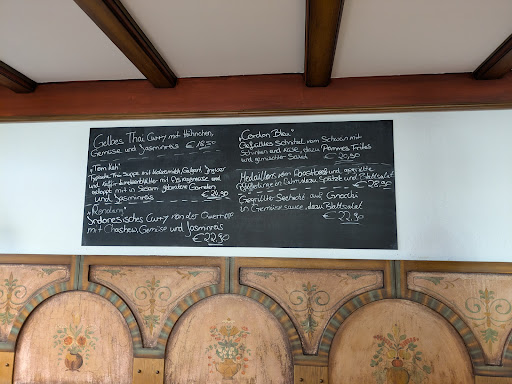 Gelbes Thai Curry mit Hähnchen,
Gemüse und Jasminreis € 18,50
"Tom Kah"
Thai Suppe mit Kokosmilch, Galgant, Ingwer
und Kaffir-Limettenblätter mit
in Sesam gebratene Garnelen
und Jasminreis € 24,90
"Rendang"
Indonesisches Curry von der
mit Cashew, Gemüse und Jasminreis
€ 22,90
"Cordon Bleu"
Gefülltes Schnitzel vom Schwein mit
Schinken und Käse, dazu Pommes Frites
und gemischter Salat € 20,50
Medaillons vom und gegrillte
in Spätzle und Blattsalat
€ 28,90
Gegrillter auf Gnocchi
in Gemüsesauce, dazu Blattsalat
€ 22,90